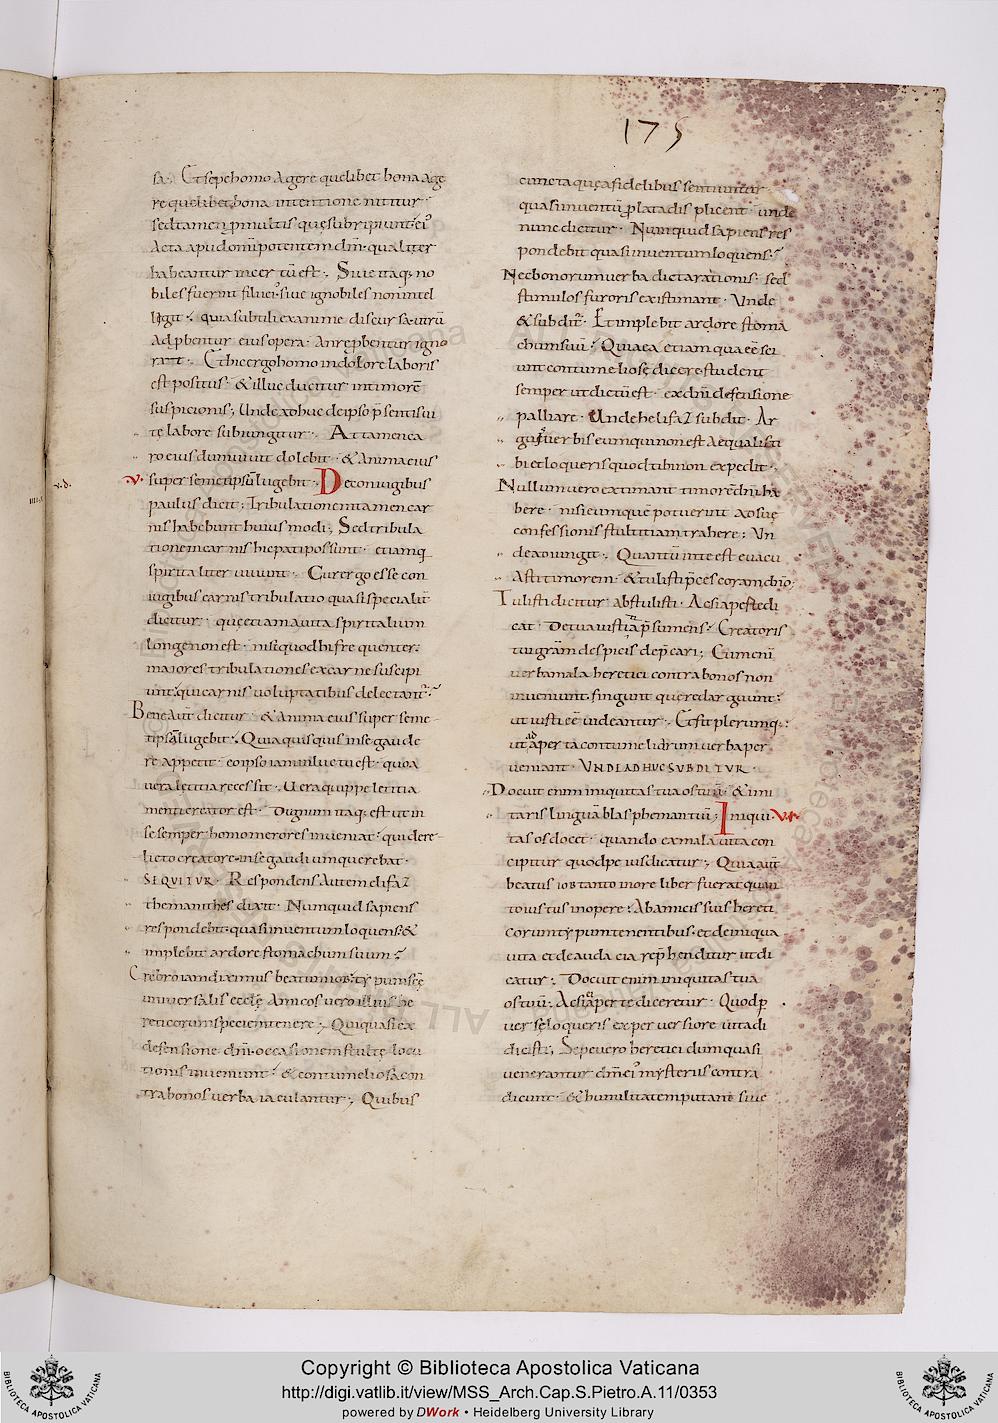 175
sa. Et sepe homo agere quelibet bona age
re quelibet bona intentione nititur.
sed tamen p multis que subripiunt. ei'
Acta apud omnipotentem dnm. qualiter
habeantur incertu est. Siue itaq; no
biles fuerint filii ei'. siue ignobiles non intel
ligit. quia subtili examine discussa. utru
Adpbentur eius opera. An reprobentur igno
rat. Et hic ergo homo in dolore laboris
est positus. & illuc ducitur in timore
suspicionis; Unde adhuc de ipso psentis ui
te labore subiungitur. Attamen ca
ro eius dum uiuit dolebit. & Anima eius
super semetipsu lugebit. De coniugibus
paulus dicit; Tribulationem tamen car
nis habebunt huius modi; Sed tribula
tionem carnis hi pati possunt. etiam q
spiritaliter uiuunt. Cur ergo esse con
iugibus carnis tribulatio quasi specialit
dicitur. que etiam a uita spiritalium
longe non est. nisi quod hi frequenter
maiores tribulationes ex carne suscipi
unt. qui carnis uoluptatibus delectant.
Bene aut dicitur. & Anima eius super seme
tipsa lugebit. Quia quisquis in se gaude
re appetit. eo ipso iam in luctu est. quo a
uera letitia recessit. Uera quippe letitia
mentis creator est. Dignum itaq; est ut in
se semper homo merores inueniat. qui dere
licto creatore. in se gaudium querebat.
SEQUITUR. Respondens Autem elifaz
themanthes dixit. Numquid sapiens
respondebit. quasi in uentum loquens. &
implebit ardore stomachum suum?
Crebro iam diximus beatum iob. typum sce
uniuersalis eccle. Amicos uero illius he
reticorum speciem tenere. Qui quasi ex
defensione dni. occasionem stulte locu
tionis inueniunt. & contumeliosa con
tra bonos uerba iaculantur. Quibus
cuncta que a fidelibus sentiuntur
quasi in uentu plata displicent. unde
nunc dicitur. Numquid sapiens res
pondebit quasi in uentum loquens?
Nec bonorum uerba dicta rationis. sed
stimulos furoris existimant. Unde
& subdit. Et implebit ardore stoma
chum suu? Qui ea etiam que esse sci
unt contumeliose dicere student
semper ut dictu est. ex dni defensione
palliare. Unde helifaz subdit. Ar
guis uerbis eum qui non est aequalis ti
bi et loqueris quod tibi non expedit.
Nullum uero extimant timore dni ha
bere. nisi eum que potuerint ad sue
confessionis stultitiam trahere. Un
de adiungit. Quantu in te est euacu
Asti timorem. & tulisti pces coram dno;
Tulisti dicitur. abstulisti. Ac si aperte di
cat. De tua iustitia psumens. Creatoris
tui gram despicis depcari; Cum eni
uerba mala heretici contra bonos non
inueniunt. fingunt que redarguunt.
ut iusti ee uideantur. Et fit plerumq;
ut ad aperta contumeliarum uerba per
ueniant. UNDE ADHUC SUBDITUR.
Docuit enim iniquitas tua os tuu. & imi
taris lingua blasphemantiu; Iniqui
tas os docet. quando ex mala uita con
cipitur quod peius dicatur. Quia aut
beatus iob tanto in ore liber fuerat quan
to iustus in opere. Ab amicis suis hereti
corum typum tenentibus. et de iniqua
uita et de audacia reprehenditur ut di
catur. Docuit enim iniquitas tua
os tuu. Ac si aperte diceretur. Quod p
uerse loqueris ex peruersiore uita di
dicisti; Sepe uero heretici dum quasi
uenerantur dm ei' mysteriis contra
dicunt. & humilitatem putant siue
Copyright © Biblioteca Apostolica Vaticana
http://digi.vatlib.it/view/MSS_Arch.Cap.S.Pietro.A.11/0353
powered by DWork • Heidelberg University Library